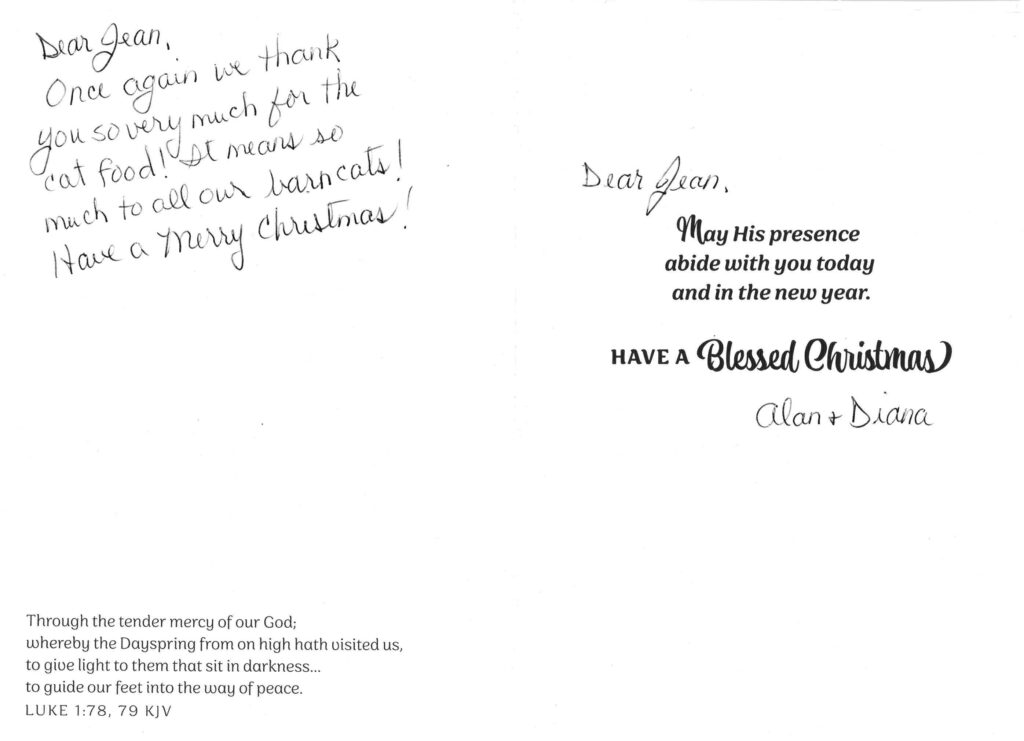 Dear Jean,
Once again we thank
you so very much for the
cat food! It means so
much to all our barncats!
Have a Merry Christmas!
Through the tender mercy of our God;
whereby the Dayspring from on high hath visited us,
to give light to them that sit in darkness...
to guide our feet into the way of peace.
LUKE 1:78, 79 KJV
Dear Jean,
May His presence
abide with you today
and in the new year.
HAVE A Blessed Christmas
Alan + Diana